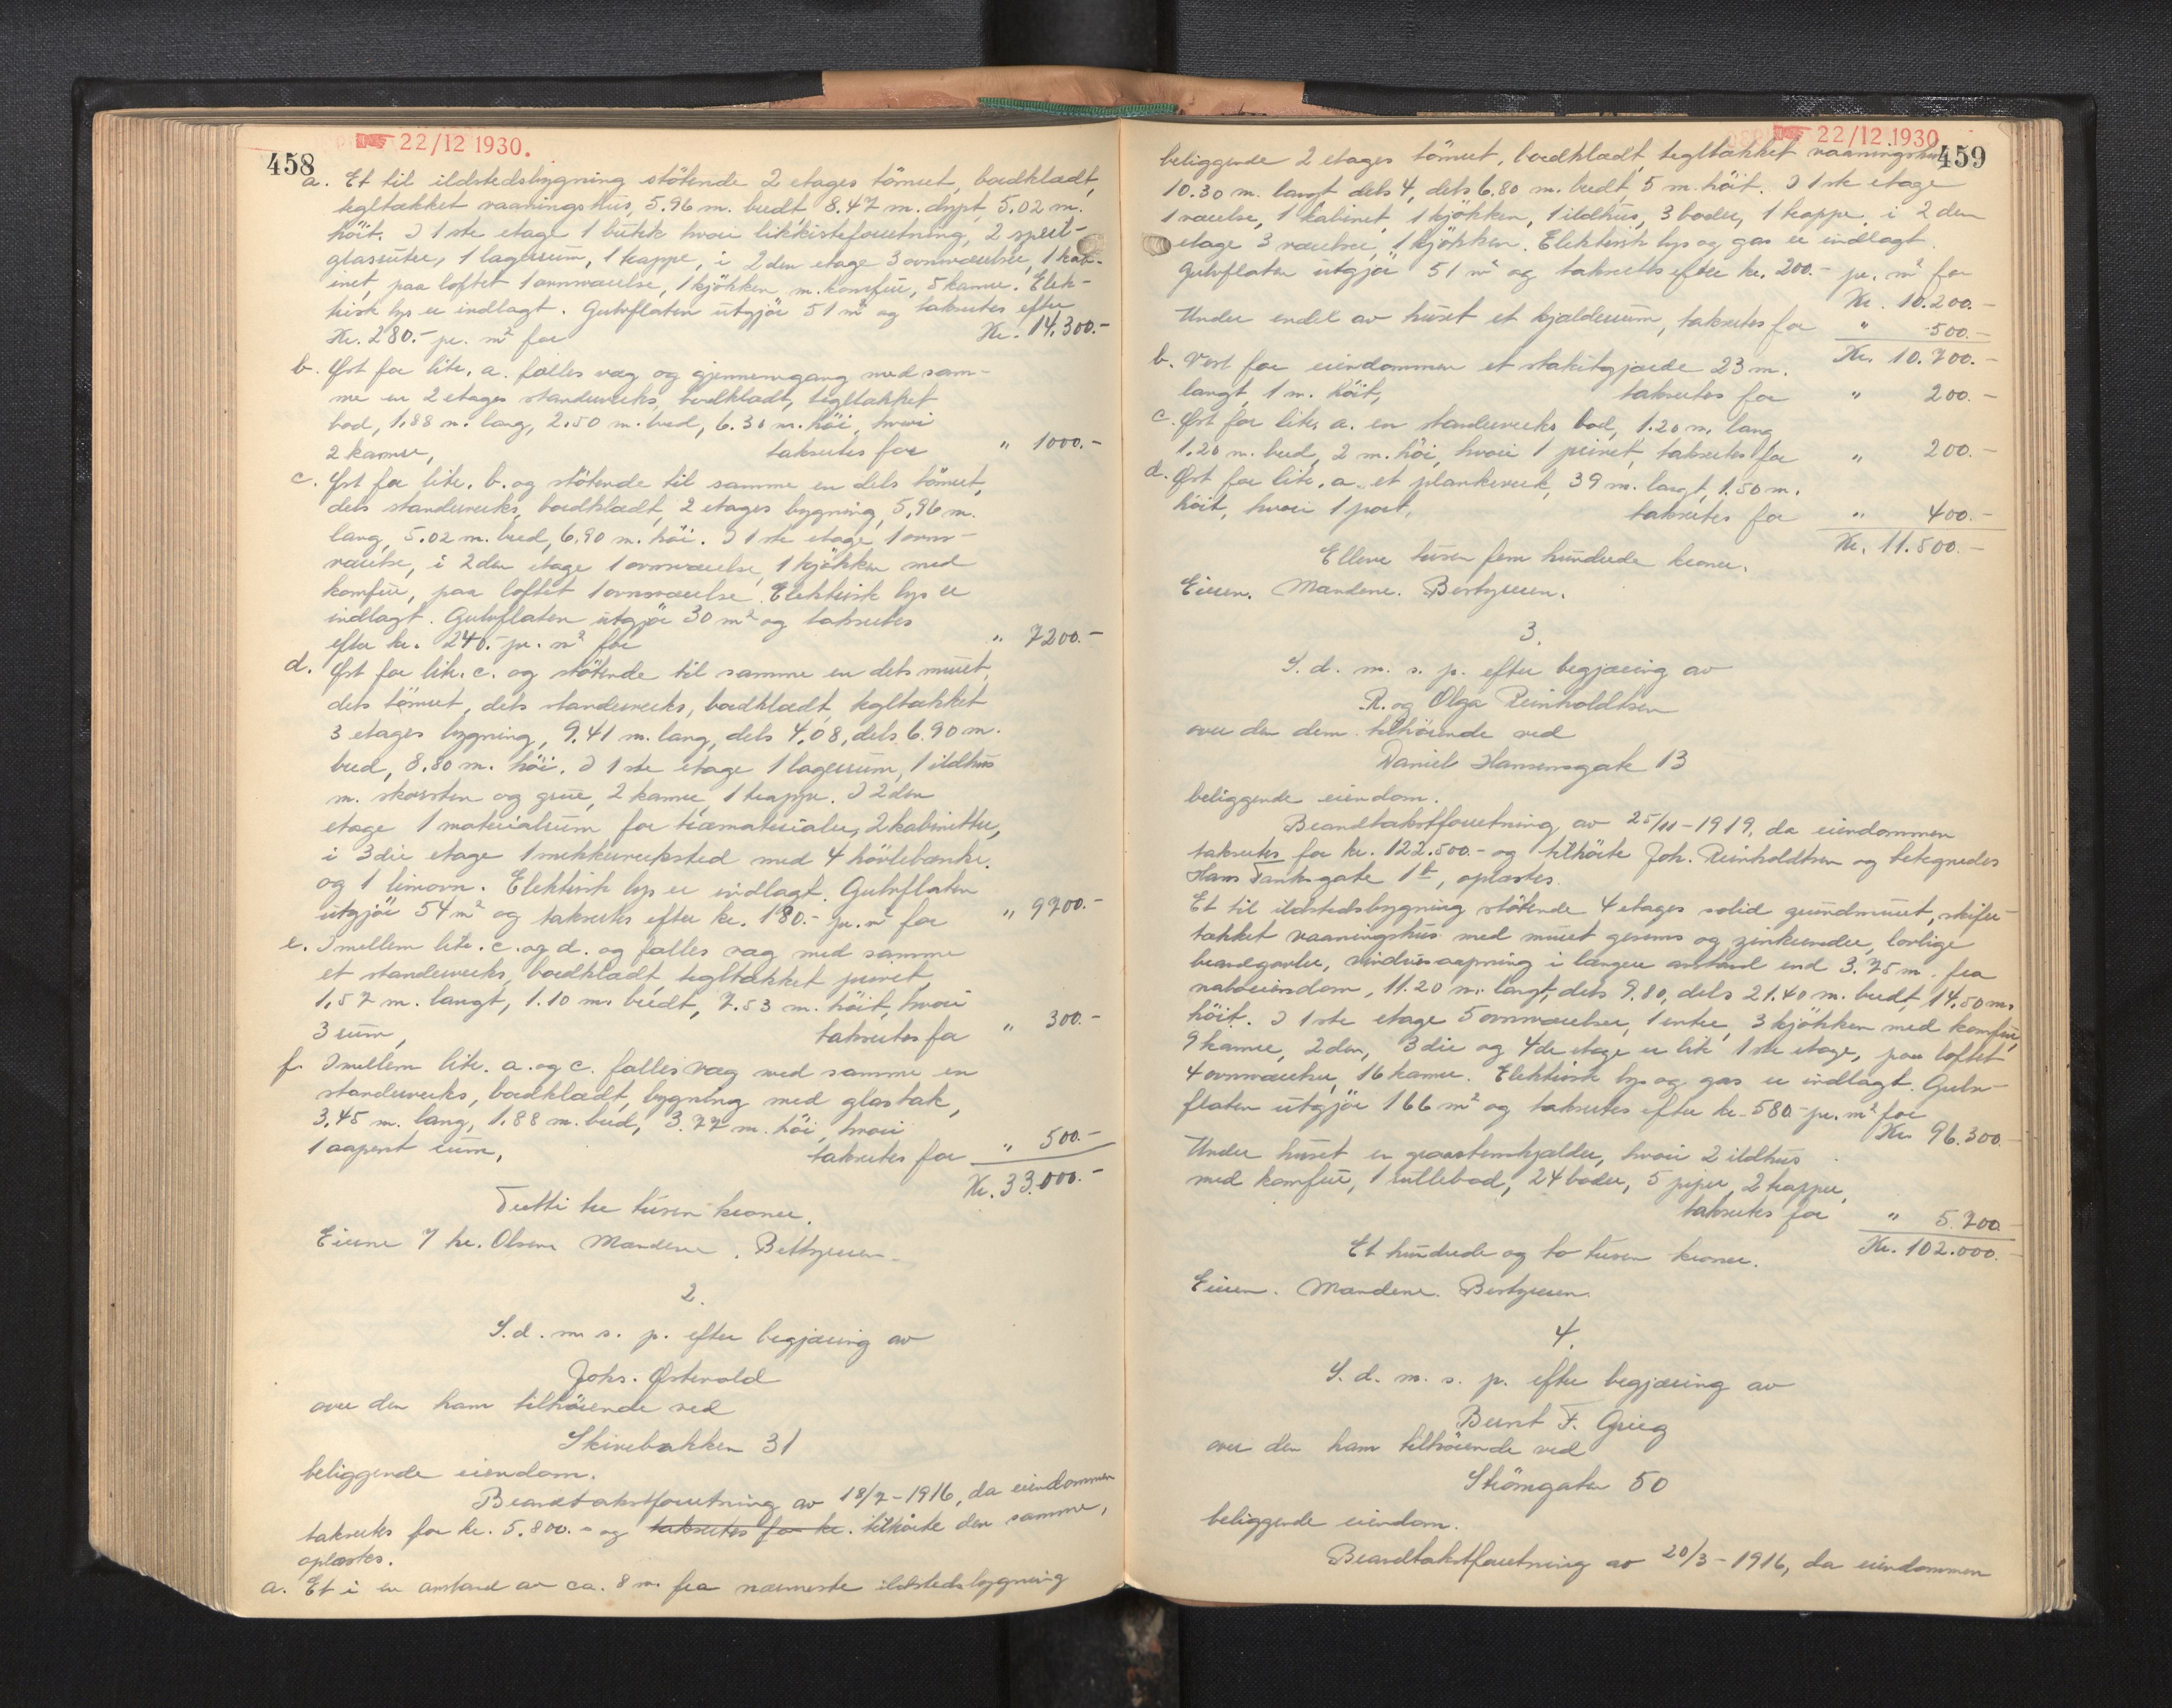 22/12 1930.
458
a. Et til ildstedsbygning stötende 2 etages tömret, bordklædt,
tegltækket vaaningshus, 5.96 m. bredt, 8.47 m. dypt, 5.02 m.
höit. I 1ste etage 1 butik hvori likkisteforretning, 2 speil-
glasruter, 1 lagerrum, 1 trappe, i 2den etage 3 ovnværelser, 1 kab-
inet, paa loftet 1 ovnværelse, 1 kjökken m. komfur, 5 kamre. Elek-
trisk lys er indlagt. Gulvflaten utgjör 51 m² og takseres efter
Kr. 280.- pr. m² for Kr. 14.300.-
b. Øst for litr. a. fælles væg og gjennemgang med sam-
me en 2 etages standerverks, bordklædt, tegltækket
bod, 1,88 m. lang, 2.50 m. bred, 6.30 m. höi, hvori
2 kamre, takseres for " 1000.-
c. Øst for litr. b. og stötende til samme en dels tömret,
dels standerverks, bordklædt, 2 etages bygning, 5,96 m.
lang, 5.02 m. bred, 6.90 m. höi. I 1ste etage 1 ovns-
værelse, i 2den etage 1 ovnsværelse, 1 kjökken med
komfur, paa loftet 1 ovnsværelse. Elektrisk lys er
indlagt. Gulvflaten utgjör 30 m² og takseres
efter kr. 240.- pr. m² for " 7200.-
d. Øst for litr. c. og stötende til samme en dels muret,
dels tömret, dels standerverks, bordklædt, tegltækket
3 etages bygning, 9.41 m. lang, dels 4,08, dels 6.90 m.
bred, 8.80 m. höi. I 1ste etage 1 lagerrum, 1 ildhus
m. skorsten og grue, 2 kamre, 1 trappe. I 2den
etage 1 materialrum for træmaterialer, 2 kabinetter,
i 3die etage 1 snekkerverksted med 4 hövlebænke,
og 1 limovn. Elektrisk lys er indlagt. Gulvflaten
utgjör 54 m² og takseres efter kr. 180.- pr. m² for " 9700.-
e. Imellem litr. c. og d. og fælles væg med samme
et standerverks, bordklædt, tegltækket privet,
1,57 m. langt, 1.10 m. bredt, 7.53 m. höit, hvori
3 rum, takseres for " 300.-
f. Imellem litr. a. og c. fælles væg med samme en
standerverks, bordklædt, bygning med glastak,
3,45 m. lang, 1,88 m. bred, 3.77 m. höi, hvori
1 aapent rum, takseres for " 500.-
Kr. 33.000.-
Tretti tre tusen kroner.
Eierne 7 kr. Olsen Mændene. Bestyreren.
2.
S. d. m. s. p. efter begjæring av
Johs. Østervold
over den ham tilhörende ved
Skivebakken 31
beliggende eiendom.
Brandtakstforretning av 18/7-1916, da eiendommen
takseres for kr. 5.800.- og takseres for kr. tilhörte den samme,
oplæstes.
a. Et i en avstand av ca. 8 m. fra nærmeste ildstedsbygning
22/12 1930
459
beliggende 2 etages tömret, bordklædt, tegltækket vaaningshus
10.30 m. langt, dels 4, dels 6.80 m. bredt, 5 m. höit. I 1ste etage
1 værelse, 1 kabinet, 1 kjökken, 1 ildhus, 3 boder, 1 trappe, i 2den
etage 3 værelser, 1 kjökken. Elektrisk lys og gas er indlagt.
Gulvflaten utgjör 51 m² og takseres efter kr. 200.- pr. m² for
Kr. 10.200.-
Under endel av huset et kjælderrum, takseres for " 500.-
Kr. 10.700.-
b. Vest for eiendommen et stakitgjærde 23 m.
langt, 1 m. höit, takseres for " 200.-
c. Øst for litr. a. en standerverks bod, 1.20 m. lang
1.20 m. bred, 2 m. höi, hvori 1 privet, takseres for " 200.-
d. Øst for litr. a. et plankeverk, 39 m. langt, 1.50 m.
höit, hvori 1 port, takseres for " 400.-
Kr. 11.500.-
Elleve tusen fem hundrede kroner.
Eieren. Mændene. Bestyreren.
3.
S. d. m. s. p. efter begjæring av
R. og Olga Reinholdtsen
over den dem tilhörende ved
Daniel Hansensgate 13
beliggende eiendom.
Brandtakstforretning av 25/11-1919, da eiendommen
takseres for kr. 122.500.- og tilhörte Joh. Reinholdtsen og betegnedes
Hans Tanksgate 1 b, oplæstes.
Et til ildstedsbygning stötende 4 etages solid grundmuret, skifer-
tækket vaaningshus med muret gesims og zinkrender, lovlige
brandgavler, vindusaapning i længere avstand end 3.75 m. fra
naboeiendom, 11.20 m. langt, dels 9.80, dels 21.40 m. bredt, 14.50 m.
höit. I 1ste etage 5 ovnværelser, 1 entre, 3 kjökken med komfur,
9 kamre, 2den, 3die og 4de etage er lik 1ste etage, paa loftet
4 ovnværelser, 16 kamre. Elektrisk lys og gas er indlagt. Gulv-
flaten utgjör 166 m² og takseres efter kr. 580.- pr. m² for
Kr. 96.300.-
Under huset en graastenskjælder, hvori 2 ildhus
med komfur, 1 rullebod, 24 boder, 5 piper, 2 trapper,
takseres for " 5.700.-
Kr. 102.000.-
Et hundrede og to tusen kroner.
Eieren. Mændene. Bestyreren.
4.
S. d. m. s. p. efter begjæring av
Bernt F. Grieg
over den ham tilhörende ved
Strömgaten 50
beliggende eiendom.
Brandtakstforretning av 20/3-1916, da eiendommen